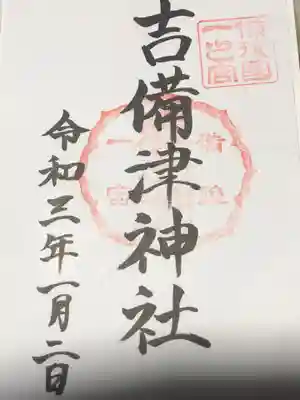 備後國
一之宮
吉備津神社
令和三年一月二日